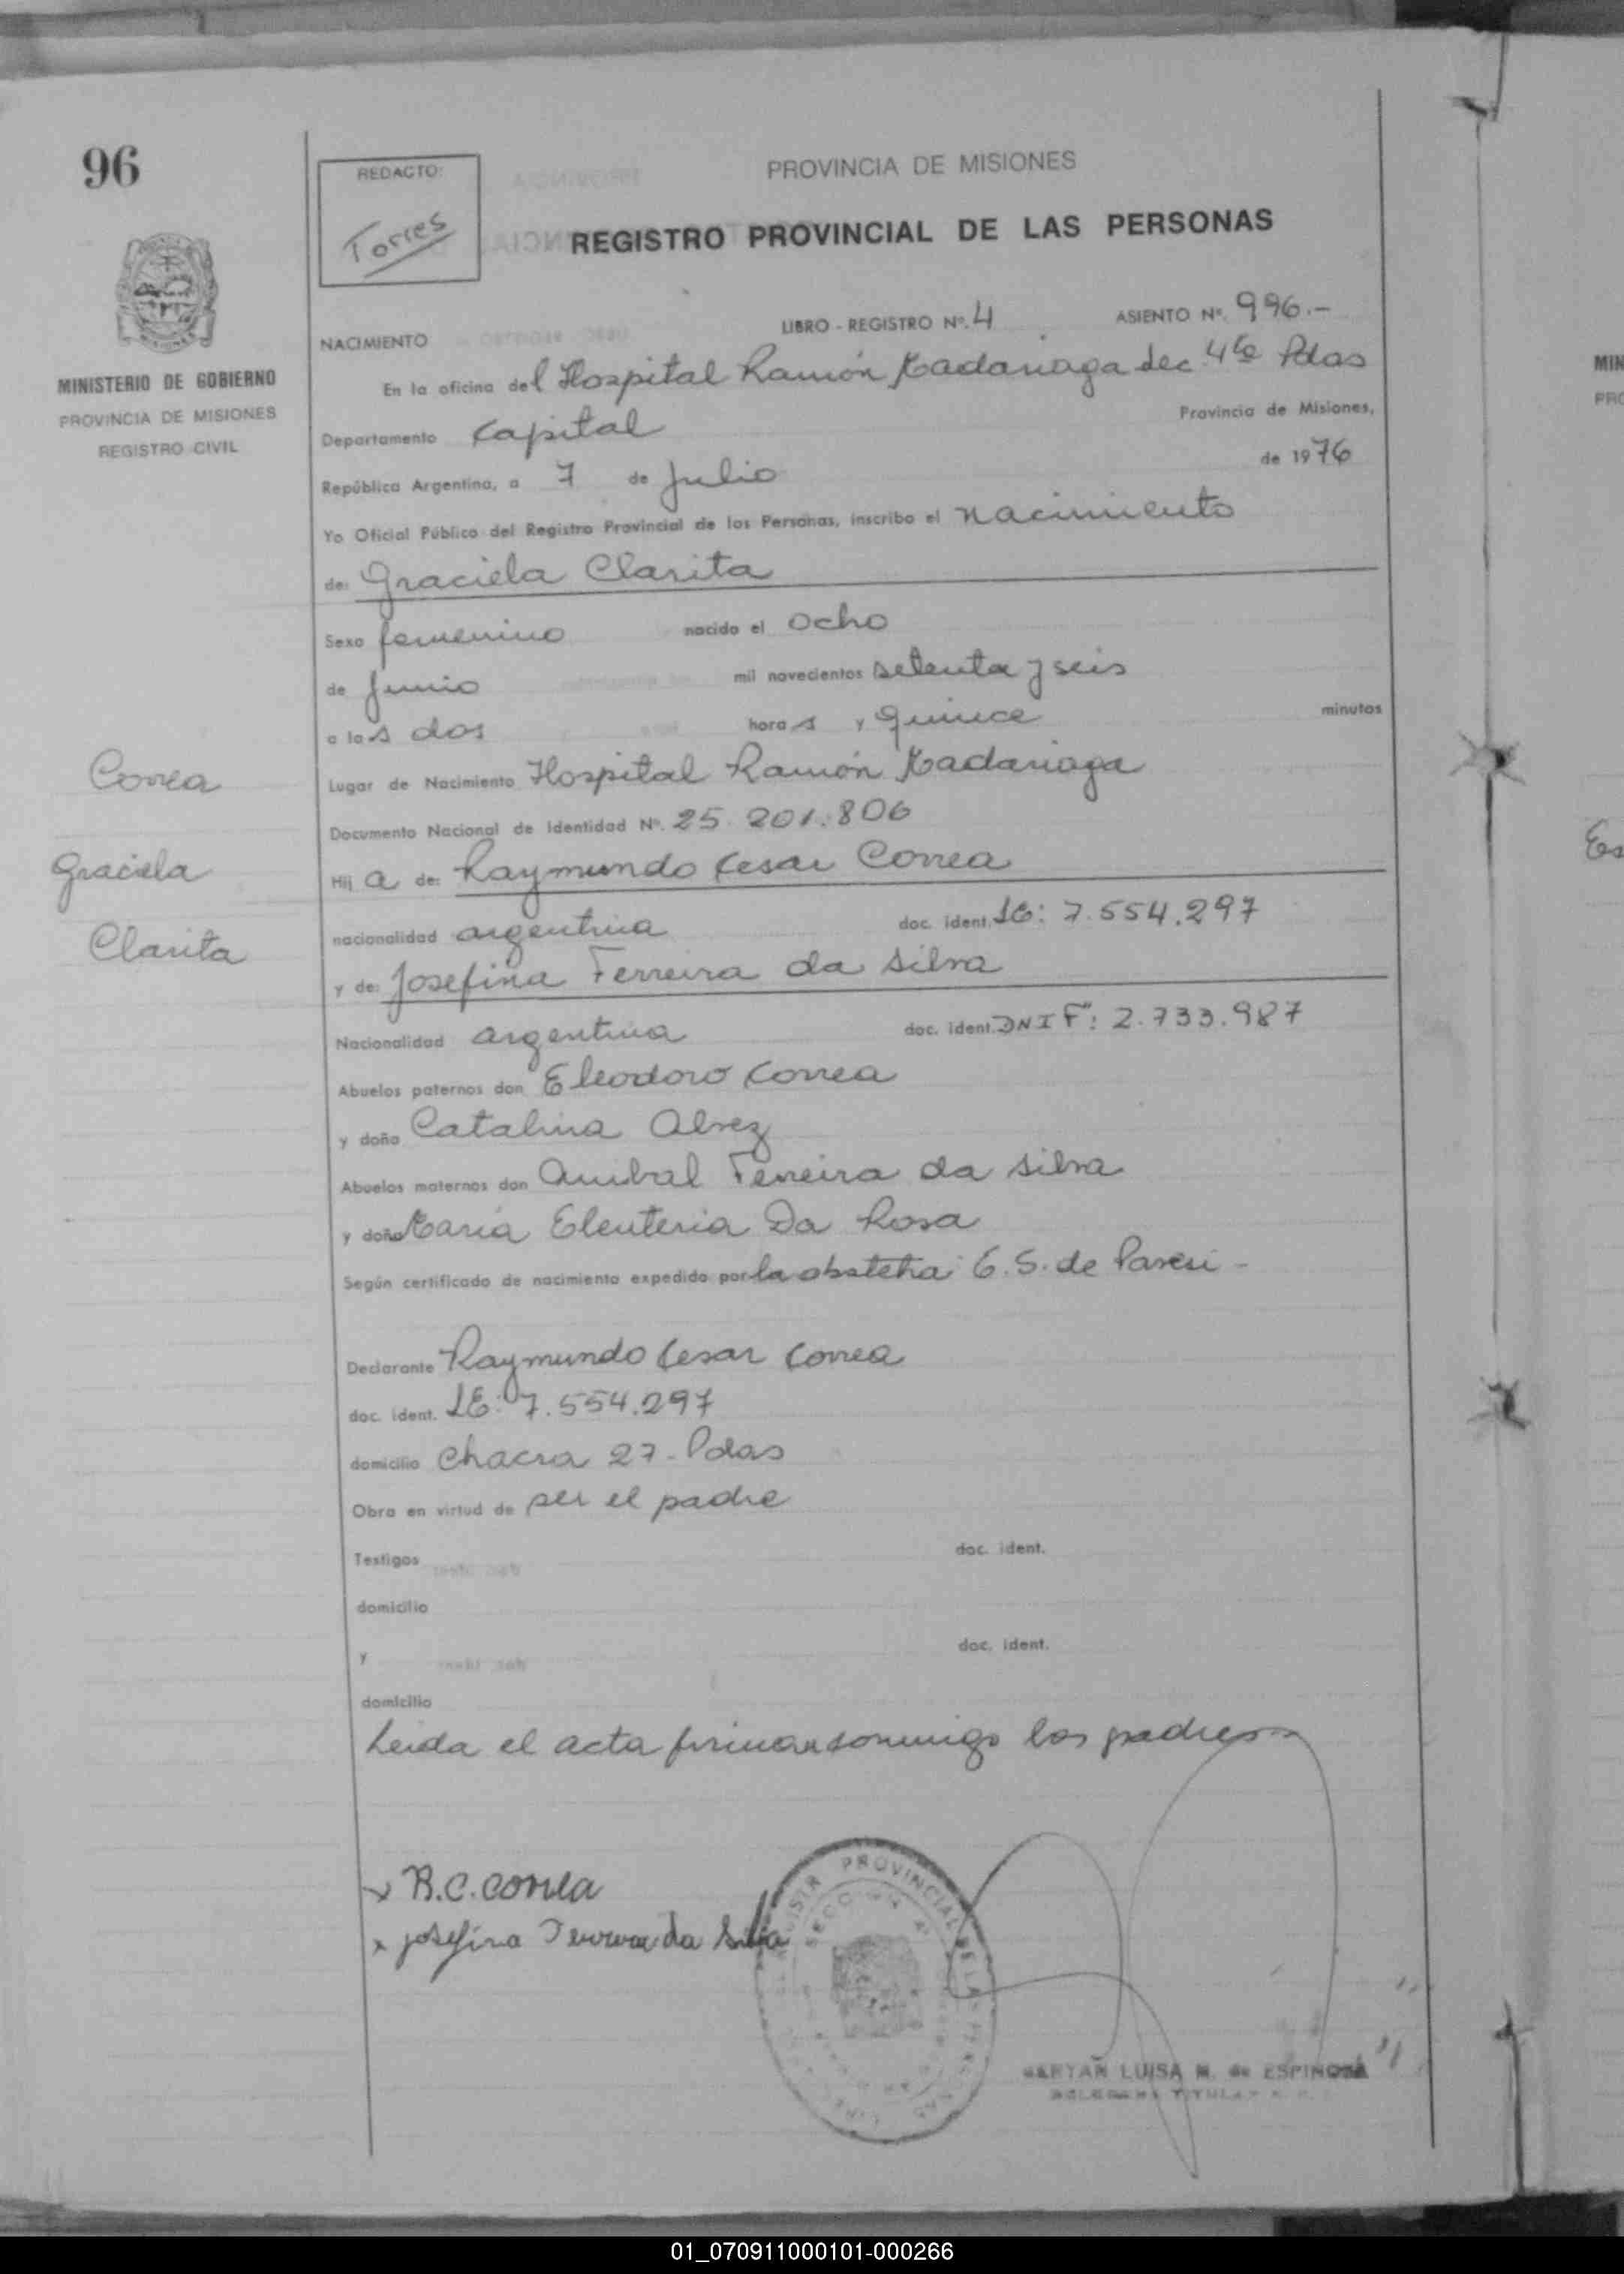 96
REDACTO:
Torres
PROVINCIA DE MISIONES
REGISTRO PROVINCIAL DE LAS PERSONAS
MINISTERIO DE GOBIERNO
PROVINCIA DE MISIONES
REGISTRO CIVIL
LIBRO - REGISTRO Nº. 4 ASIENTO Nº. 996.-
NACIMIENTO
En la oficina del Hospital Ramón Madariaga Sec. 4ta Pdas
Departamento Capital Provincia de Misiones,
República Argentina, a 7 de Julio de 1976
Yo Oficial Público del Registro Provincial de las Personas, inscribo el nacimiento
de: Graciela Clarita
Sexo femenino nacido el ocho
de Junio mil novecientos setenta y seis
a las dos horas y quince minutos
Lugar de Nacimiento Hospital Ramón Madariaga
Documento Nacional de Identidad Nº. 25.201.806
Hija de: Raymundo Cesar Correa
nacionalidad argentina doc. ident. LE: 7.554.297
y de: Josefina Ferreira da Silva
Nacionalidad argentina doc. ident. DNI F: 2.733.987
Abuelos paternos don Eleodoro Correa
y doña Catalina Alvez
Abuelos maternos don Anibal Ferreira da Silva
y doña Maria Eleuteria Da Rosa
Según certificado de nacimiento expedido por la obstetra G.S. de Paresi -
Correa
Graciela
Clarita
Declarante Raymundo Cesar Correa
doc. ident. LE: 7.554.297
domicilio Chacra 27 - Pdas
Obra en virtud de ser el padre
Testigos doc. ident.
domicilio
y doc. ident.
domicilio
Leida el acta firman conmigo los padres
x R.C. Correa
x Josefina Ferreira da Silva
PROVINCIAL DE LAS
LUISA M. de ESPINOSA
TITULAR
MIN
PRO
Es
01_070911000101-000266